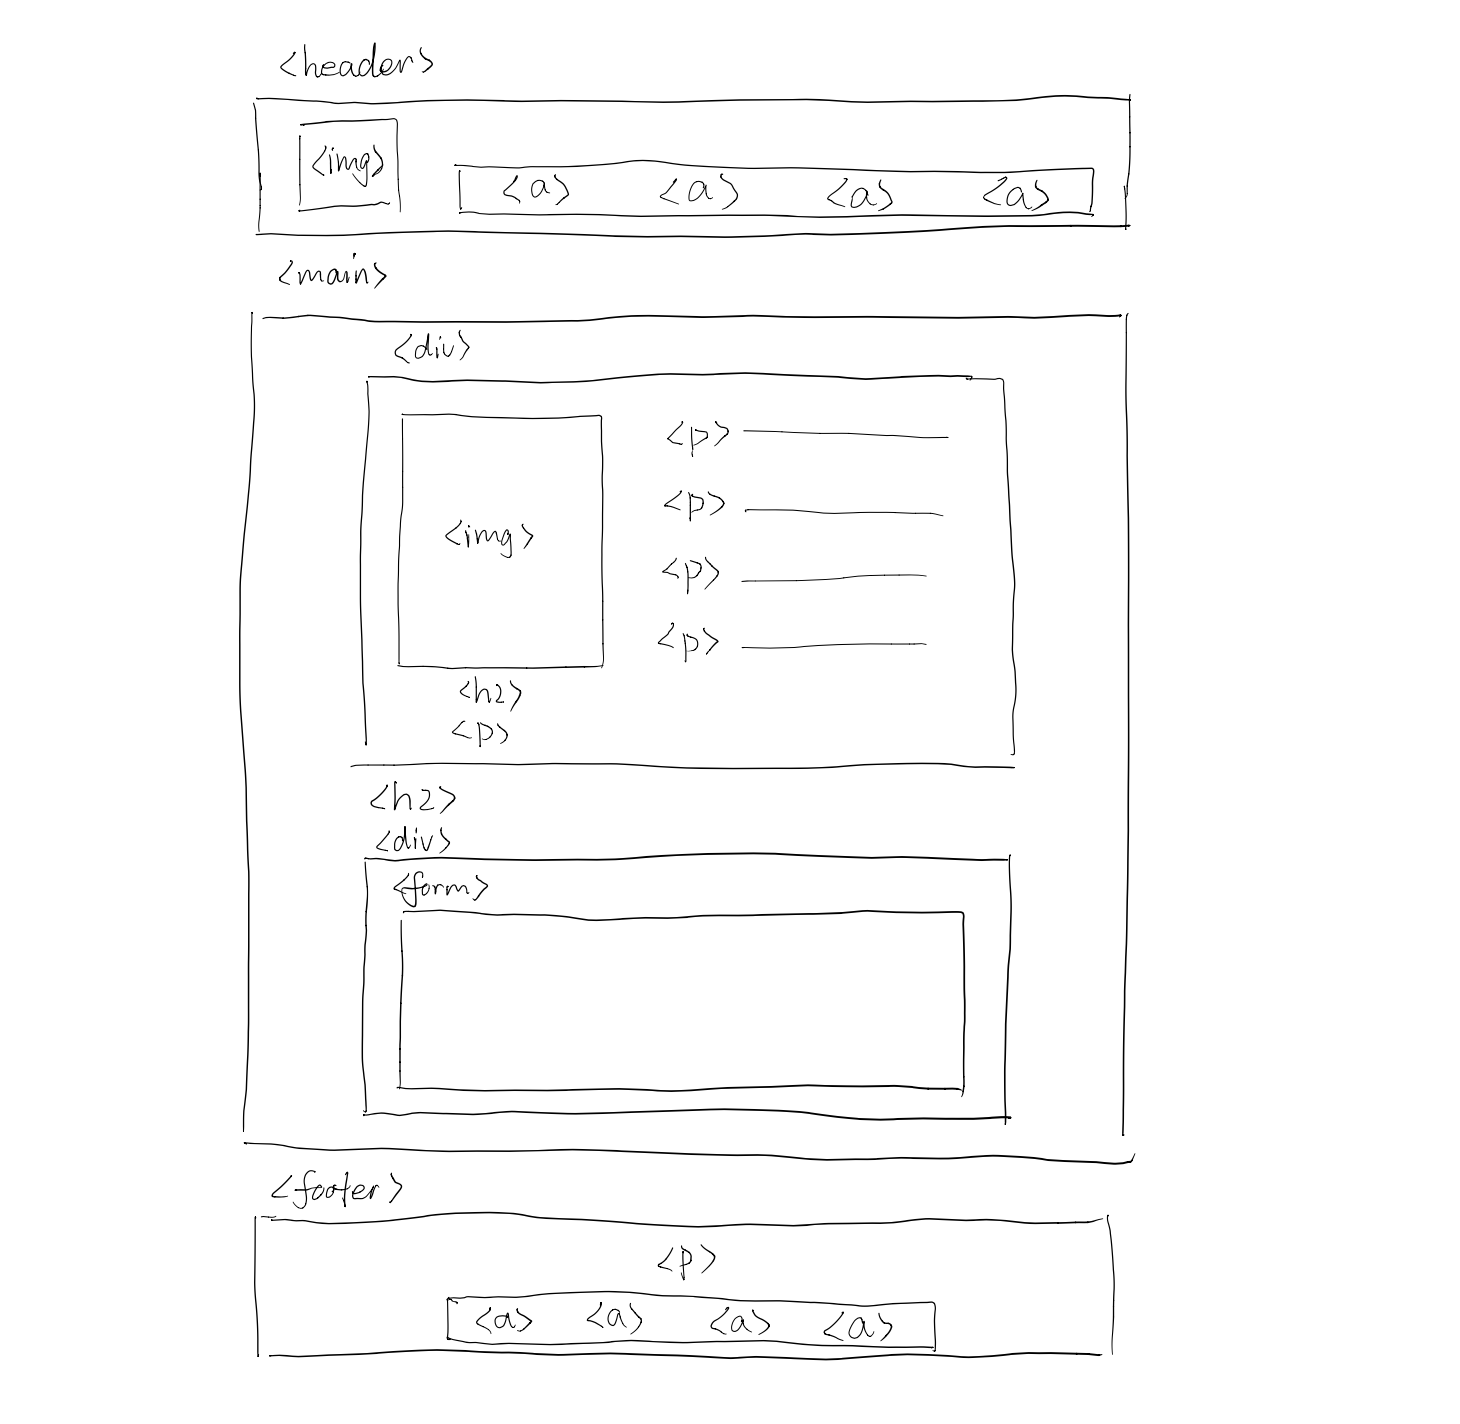 <header>
<img>
<a> <a> <a> <a>
<main>
<div>
<img>
<p>
<p>
<p>
<p>
<h2>
<p>
<h2>
<div>
<form>
<footer>
<p>
<a> <a> <a> <a>